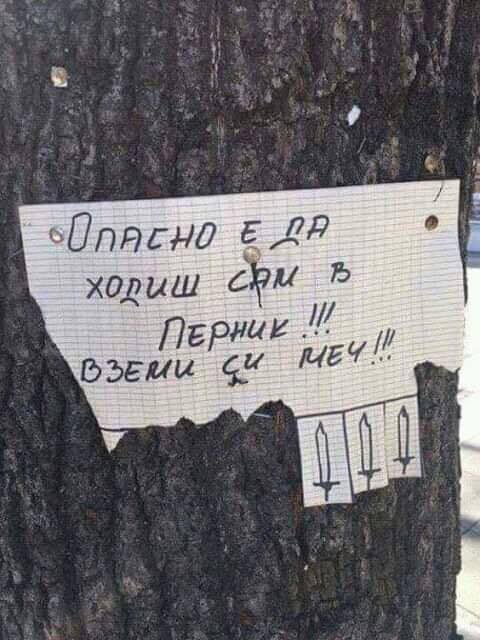 Опасно е да
ходиш сам в
Перник!!!
Вземи си меч!!!